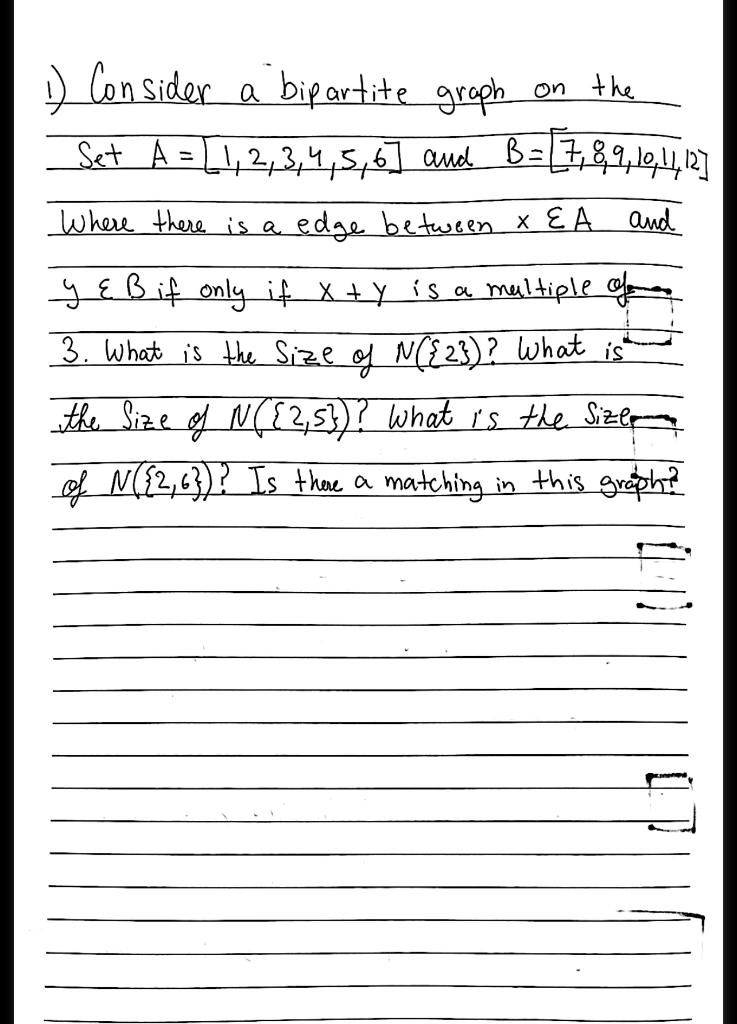 1) Consider a bipartite graph on the
Set A = [1,2,3,4,5,6] and B = [7,8,9,10,11,12]
Where there is a edge between x Ɛ A and
y Ɛ B if only if x + y is a multiple of
3. What is the Size of N({2})? What is
the Size of N({2,5})? What is the Size
of N({2,6})? Is there a matching in this graph?